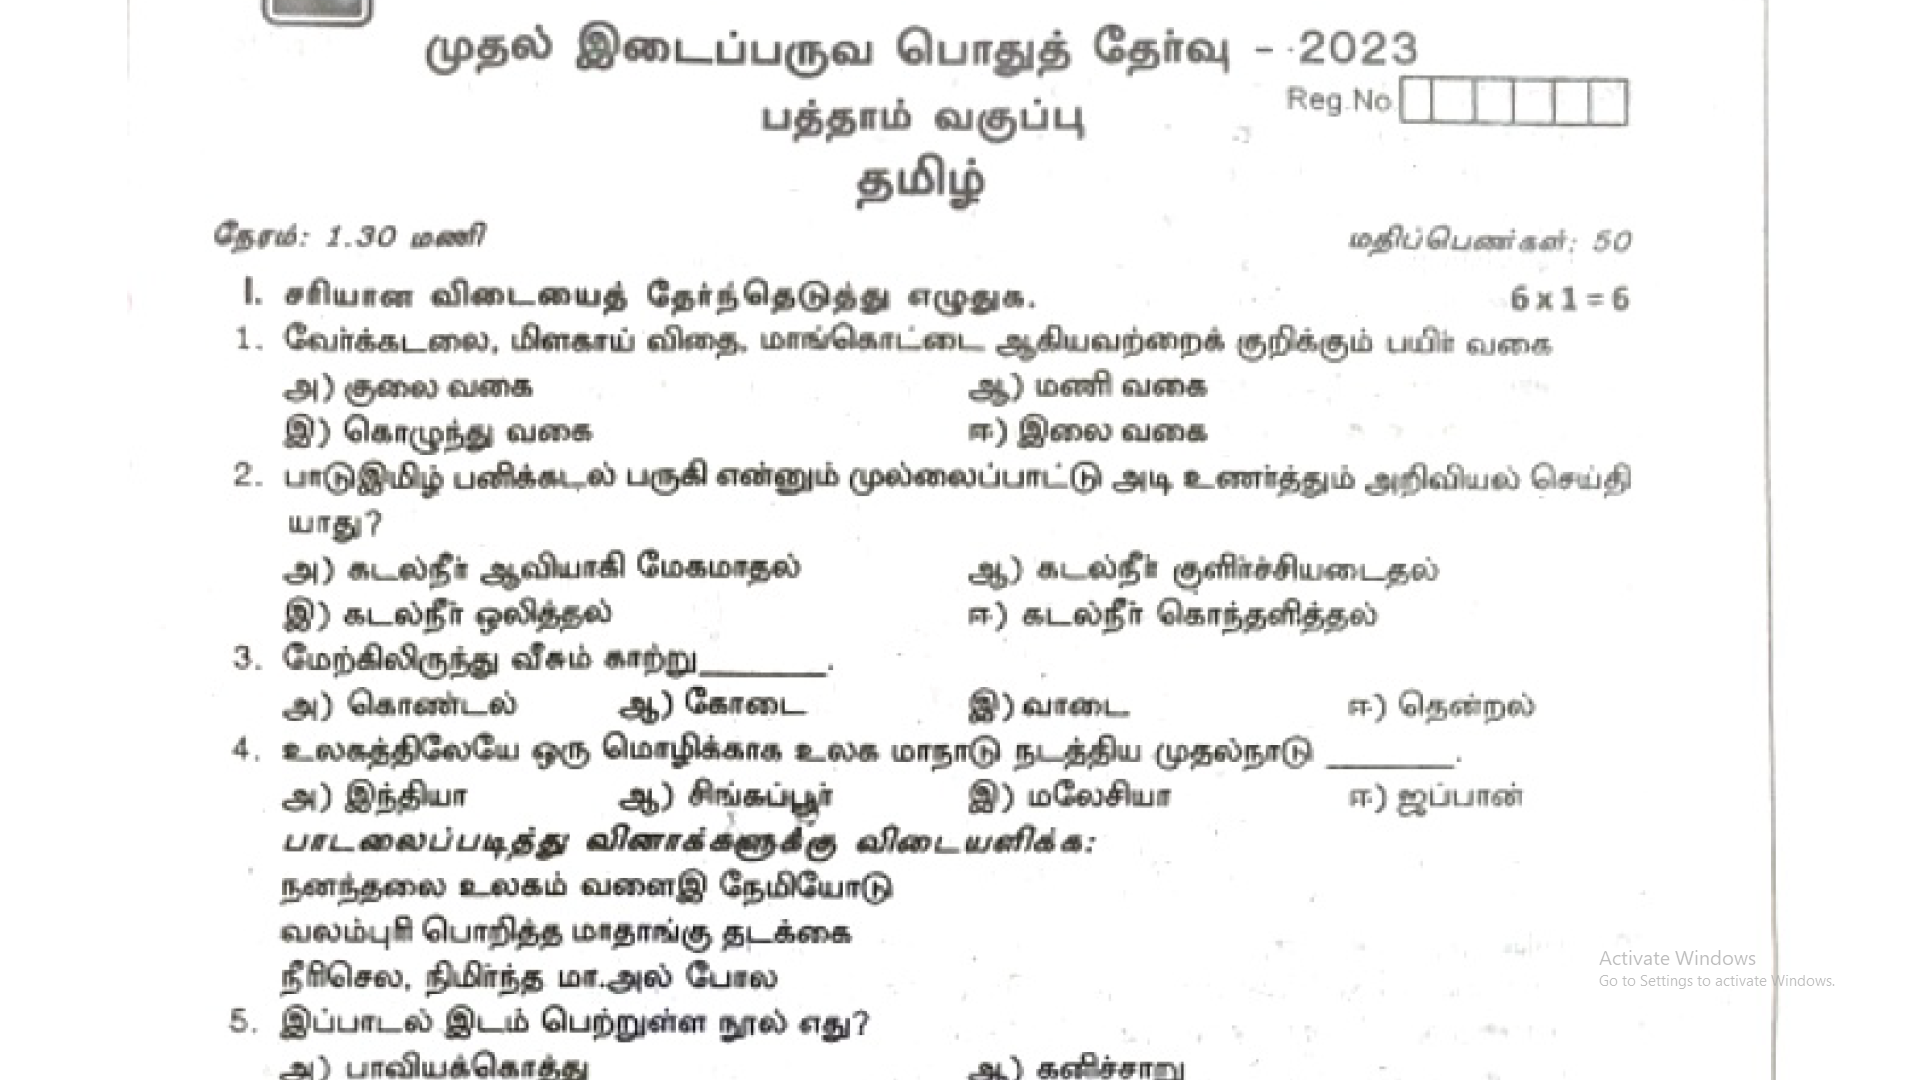 முதல் இடைப்பருவ பொதுத் தேர்வு - 2023
Reg.No
பத்தாம் வகுப்பு
தமிழ்
நேரம்: 1.30 மணி மதிப்பெண்கள்: 50
I. சரியான விடையைத் தேர்ந்தெடுத்து எழுதுக. 6 x 1 = 6
1. வேர்க்கடலை, மிளகாய் விதை, மாங்கொட்டை ஆகியவற்றைக் குறிக்கும் பயிர் வகை
அ) குலை வகை ஆ) மணி வகை
இ) கொழுந்து வகை ஈ) இலை வகை
2. பாடுஇமிழ் பனிக்கடல் பருகி என்னும் முல்லைப்பாட்டு அடி உணர்த்தும் அறிவியல் செய்தி
யாது?
அ) கடல்நீர் ஆவியாகி மேகமாதல் ஆ) கடல்நீர் குளிர்ச்சியடைதல்
இ) கடல்நீர் ஒலித்தல் ஈ) கடல்நீர் கொந்தளித்தல்
3. மேற்கிலிருந்து வீசும் காற்று_______.
அ) கொண்டல் ஆ) கோடை இ) வாடை ஈ) தென்றல்
4. உலகத்திலேயே ஒரு மொழிக்காக உலக மாநாடு நடத்திய முதல்நாடு _______.
அ) இந்தியா ஆ) சிங்கப்பூர் இ) மலேசியா ஈ) ஜப்பான்
பாடலைப்படித்து வினாக்களுக்கு விடையளிக்க:
நனந்தலை உலகம் வளைஇ நேமியோடு
வலம்புரி பொறித்த மாதாங்கு தடக்கை
நீர்செல, நிமிர்ந்த மா.அல் போல
5. இப்பாடல் இடம் பெற்றுள்ள நூல் எது?
அ) பாவியக்கொத்து ஆ) கனிச்சாறு
Activate Windows
Go to Settings to activate Windows.